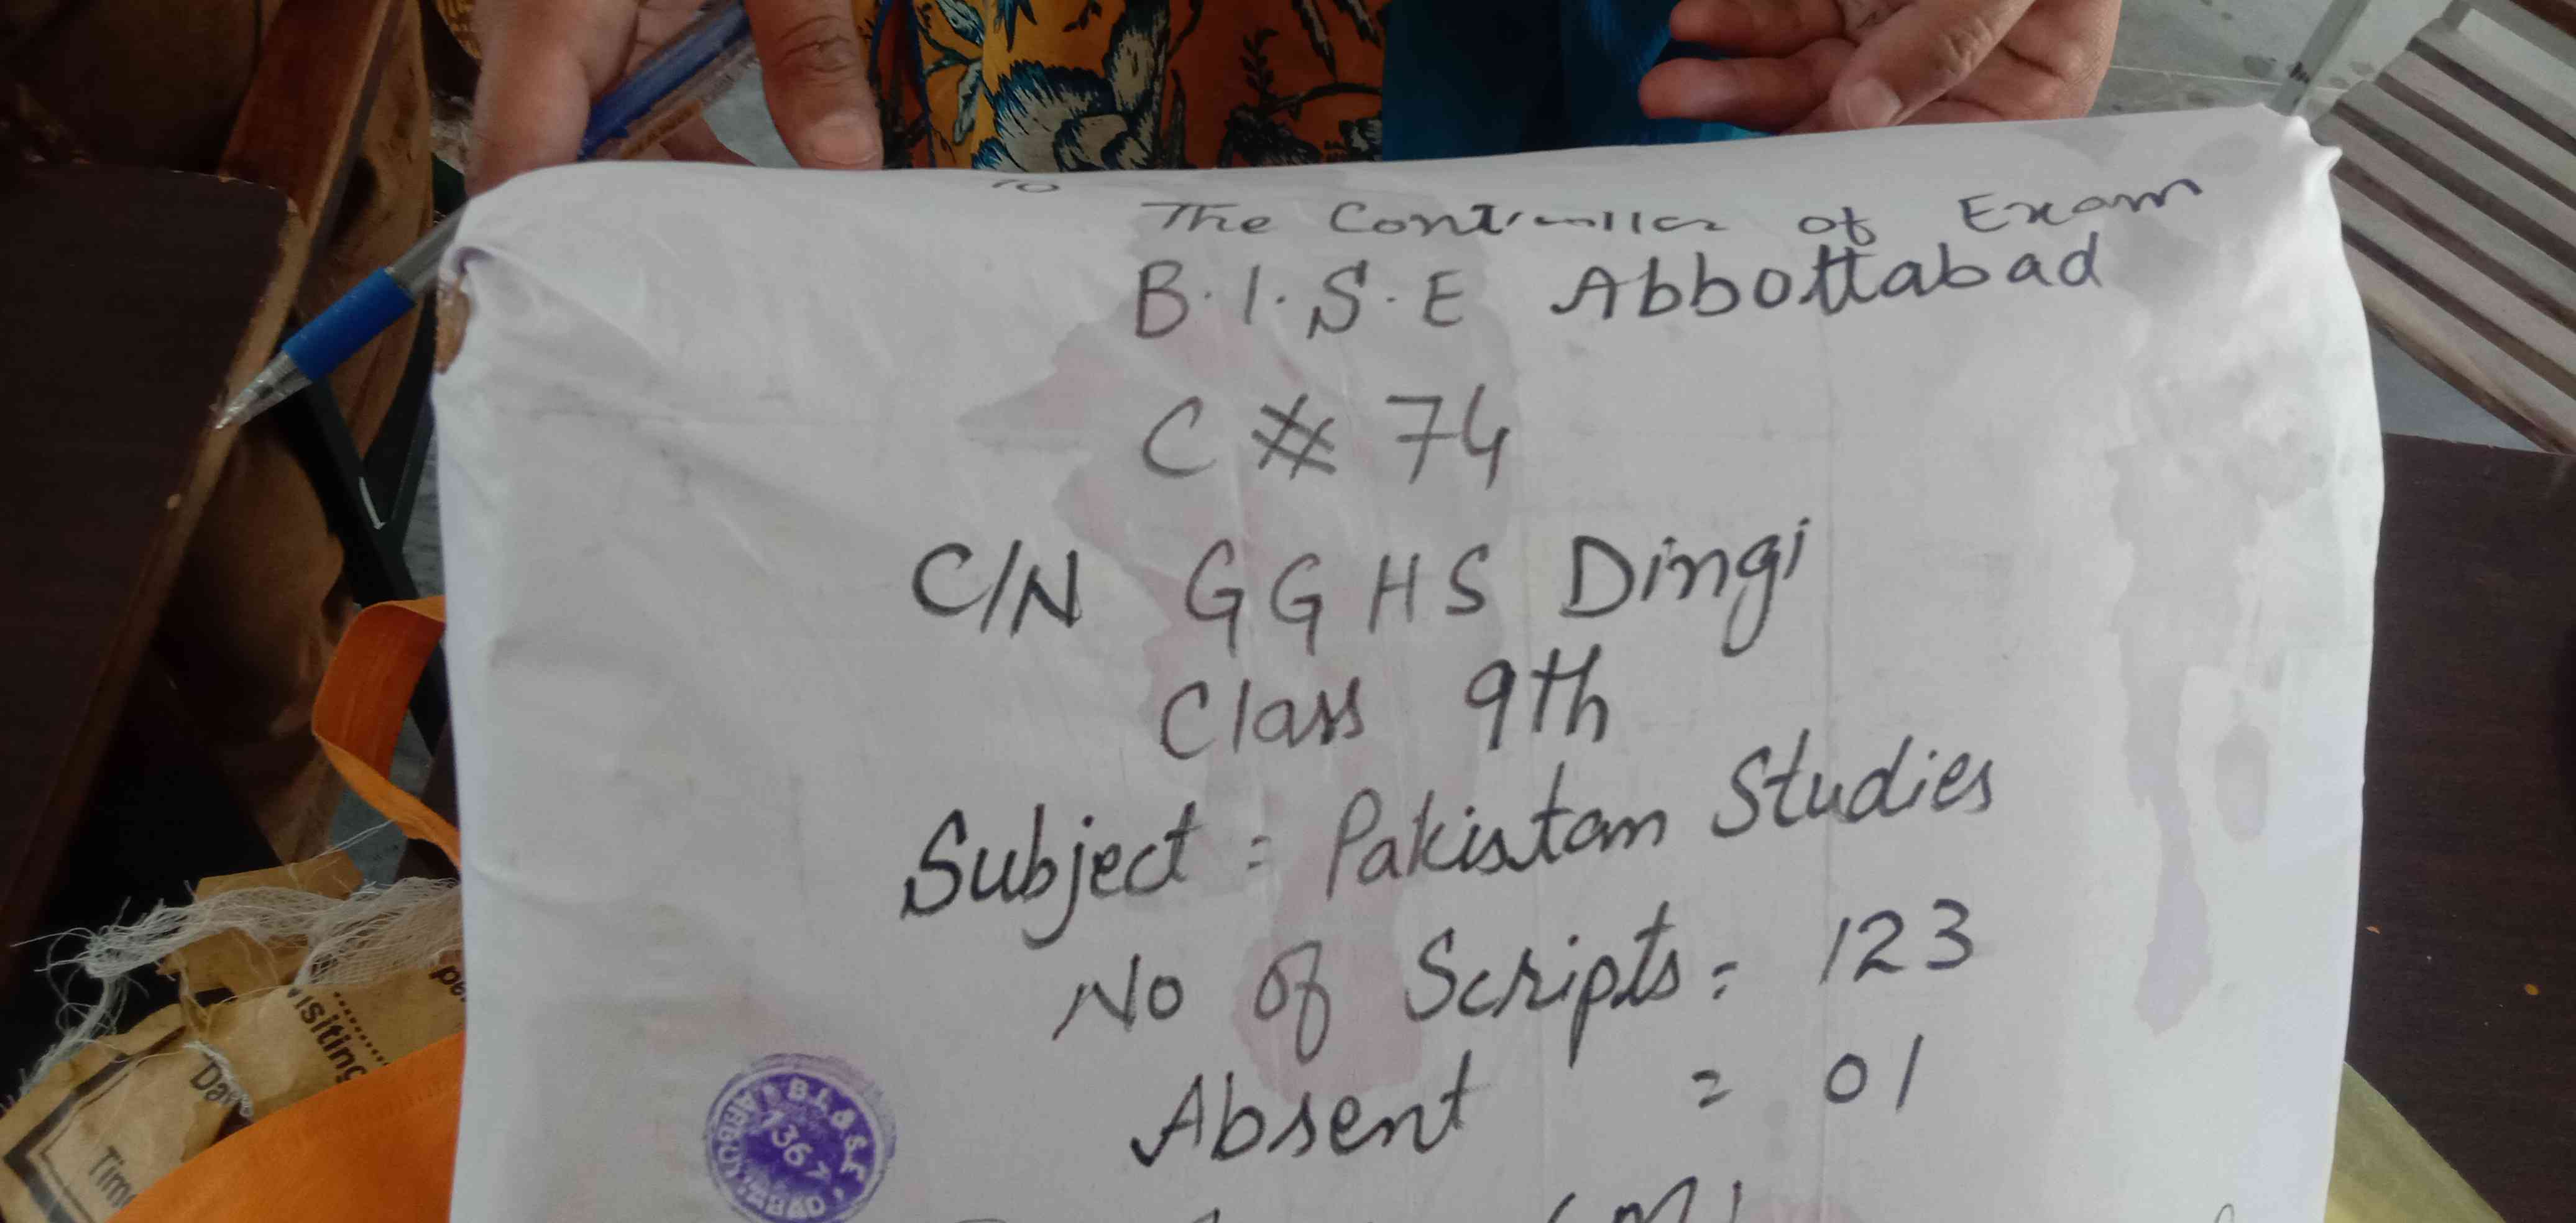 To
The Controller of Exam
B.I.S.E Abbottabad
C # 74
C/N GGHS Dingi
Class 9th
Subject = Pakistan Studies
No of Scripts = 123
Absent = 01
ABBOTTABAD
367
isiting
Time